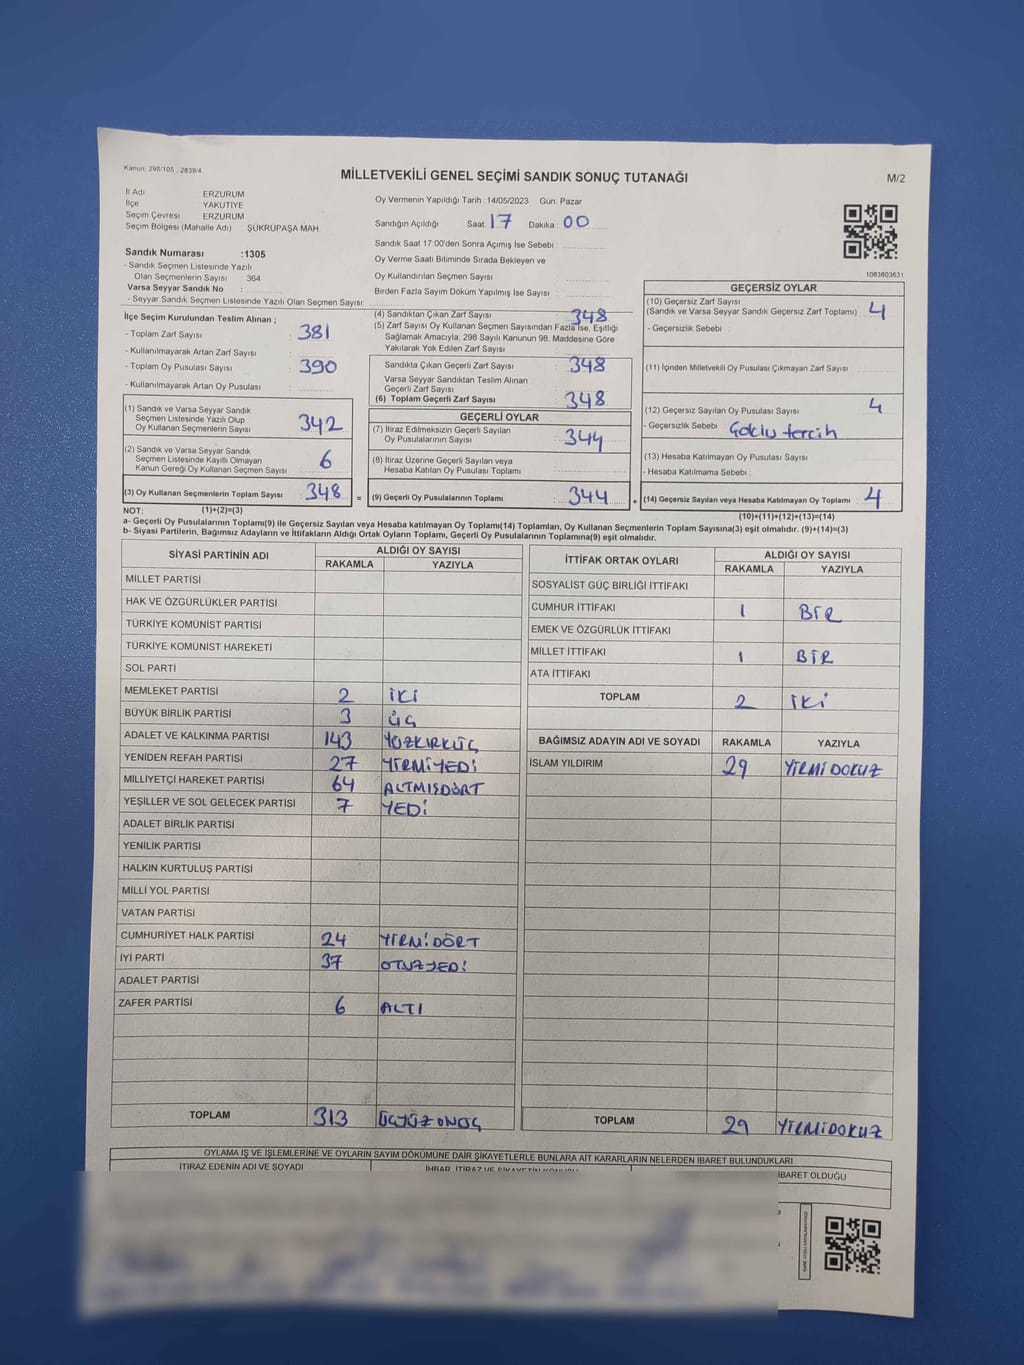 Kanun: 298/105 , 2839/4
MİLLETVEKİLİ GENEL SEÇİMİ SANDIK SONUÇ TUTANAĞI
M/2
İl Adı ERZURUM
İlçe YAKUTİYE
Seçim Çevresi ERZURUM
Seçim Bölgesi (Mahalle Adı) : ŞÜKRÜPAŞA MAH.
Sandık Numarası :1305
- Sandık Seçmen Listesinde Yazılı
Olan Seçmenlerin Sayısı : 364
Varsa Seyyar Sandık No :
- Seyyar Sandık Seçmen Listesinde Yazılı Olan Seçmen Sayısı:
Oy Vermenin Yapıldığı Tarih :14/05/2023 Gün: Pazar
Sandığın Açıldığı Saat: 17 Dakika: 00
Sandık Saat 17.00'den Sonra Açımış İse Sebebi :
Oy Verme Saati Bitiminde Sırada Bekleyen ve
Oy Kullandırılan Seçmen Sayısı
Birden Fazla Sayım Döküm Yapılmış İse Sayısı :
1083803631
İlçe Seçim Kurulundan Teslim Alınan ;
- Toplam Zarf Sayısı : 381
- Kullanılmayarak Artan Zarf Sayısı :
- Toplam Oy Pusulası Sayısı : 390
- Kullanılmayarak Artan Oy Pusulası :
(1) Sandık ve Varsa Seyyar Sandık
Seçmen Listesinde Yazılı Olup
Oy Kullanan Seçmenlerin Sayısı : 342
(2) Sandık ve Varsa Seyyar Sandık
Seçmen Listesinde Kayıtlı Olmayan
Kanun Gereği Oy Kullanan Seçmen Sayısı : 6
(3) Oy Kullanan Seçmenlerin Toplam Sayısı : 348 =
(4) Sandıktan Çıkan Zarf Sayısı : 348
(5) Zarf Sayısı Oy Kullanan Seçmen Sayısından Fazla İse, Eşitliği
Sağlamak Amacıyla, 298 Sayılı Kanunun 98. Maddesine Göre
Yakılarak Yok Edilen Zarf Sayısı :
Sandıkta Çıkan Geçerli Zarf Sayısı : 348
Varsa Seyyar Sandıktan Teslim Alınan
Geçerli Zarf Sayısı
(6) Toplam Geçerli Zarf Sayısı : 348
GEÇERLİ OYLAR
(7) İtiraz Edilmeksizin Geçerli Sayılan
Oy Pusulalarının Sayısı : 344
(8) İtiraz Üzerine Geçerli Sayılan veya
Hesaba Katılan Oy Pusulası Toplamı :
(9) Geçerli Oy Pusulalarının Toplamı : 344 +
GEÇERSİZ OYLAR
(10) Geçersiz Zarf Sayısı
(Sandık ve Varsa Seyyar Sandık Geçersiz Zarf Toplamı) : 4
- Geçersizlik Sebebi :
(11) İçinden Milletvekili Oy Pusulası Çıkmayan Zarf Sayısı :
(12) Geçersiz Sayılan Oy Pusulası Sayısı : 4
- Geçersizlik Sebebi :
(13) Hesaba Katılmayan Oy Pusulası Sayısı
- Hesaba Katılmama Sebebi :
(14) Geçersiz Sayılan veya Hesaba Katılmayan Oy Toplamı : 4
NOT: (1)+(2)=(3) (10)+(11)+(12)+(13)=(14)
a- Geçerli Oy Pusulalarının Toplamı(9) ile Geçersiz Sayılan veya Hesaba katılmayan Oy Toplamı(14) Toplamları, Oy Kullanan Seçmenlerin Toplam Sayısına(3) eşit olmalıdır. (9)+(14)=(3)
b- Siyasi Partilerin, Bağımsız Adayların ve İttifakların Aldığı Ortak Oyların Toplamı, Geçerli Oy Pusulalarının Toplamına(9) eşit olmalıdır.
SİYASİ PARTİNİN ADI ALDIĞI OY SAYISI
RAKAMLA YAZIYLA
MİLLET PARTİSİ
HAK VE ÖZGÜRLÜKLER PARTİSİ
TÜRKİYE KOMÜNİST PARTİSİ
TÜRKİYE KOMÜNİST HAREKETİ
SOL PARTİ
MEMLEKET PARTİSİ 2 İKİ
BÜYÜK BİRLİK PARTİSİ 3 ÜÇ
ADALET VE KALKINMA PARTİSİ 143 YÜZKIRKÜÇ
YENİDEN REFAH PARTİSİ 27 YİRMİYEDİ
MİLLİYETÇİ HAREKET PARTİSİ 64 ALTMIŞDÖRT
YEŞİLLER VE SOL GELECEK PARTİSİ 7 YEDİ
ADALET BİRLİK PARTİSİ
YENİLİK PARTİSİ
HALKIN KURTULUŞ PARTİSİ
MİLLİ YOL PARTİSİ
VATAN PARTİSİ
CUMHURİYET HALK PARTİSİ 24 YİRMİDÖRT
İYİ PARTİ 37 OTUZYEDİ
ADALET PARTİSİ
ZAFER PARTİSİ 6 ALTI
TOPLAM 313 ÜÇYÜZONÜÇ
İTTİFAK ORTAK OYLARI ALDIĞI OY SAYISI
RAKAMLA YAZIYLA
SOSYALİST GÜÇ BİRLİĞİ İTTİFAKI
CUMHUR İTTİFAKI 1 BİR
EMEK VE ÖZGÜRLÜK İTTİFAKI
MİLLET İTTİFAKI 1 BİR
ATA İTTİFAKI
TOPLAM 2 İKİ
BAĞIMSIZ ADAYIN ADI VE SOYADI RAKAMLA YAZIYLA
İSLAM YILDIRIM 29 YİRMİDOKUZ
TOPLAM 29 YİRMİDOKUZ
OYLAMA İŞ VE İŞLEMLERİNE VE OYLARIN SAYIM DÖKÜMÜNE DAİR ŞİKAYETLERLE BUNLARA AİT KARARLARIN NELERDEN İBARET BULUNDUKLARI
İTİRAZ EDENİN ADI VE SOYADI
İHBAR, İTİRAZ VE ŞİKAYETİN KONUSU
İBARET OLDUĞU